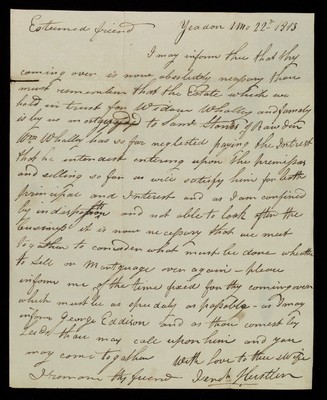 Esteemed friend Yeadon 1 mo 22d 1813
I may inform thee that thy
coming over is now absolutely nessary thou
must remember that the Estate which we
hold in trust for Widdow Whalley and family
is by us mortgaged to Saml Stones of Rawden
Wm Whalley has so far neglected paying the Intrest
that he intendest entering upon the premises
and selling so far as will satisfy him for both
principal and Intrest and as I am confined
by indisposition and not able to look after the
buseness it is now necessary that we meet
together to consider what must be done whether
to sell or Mortguage over again – please
inform me of the time fixed for thy coming over
which must be as speedaly as possable – as I may
inform George Eddison and as thou comest by
Leeds thou may call upon him and you
may come together with love to thee & Wife
I remain thy friend Hustler